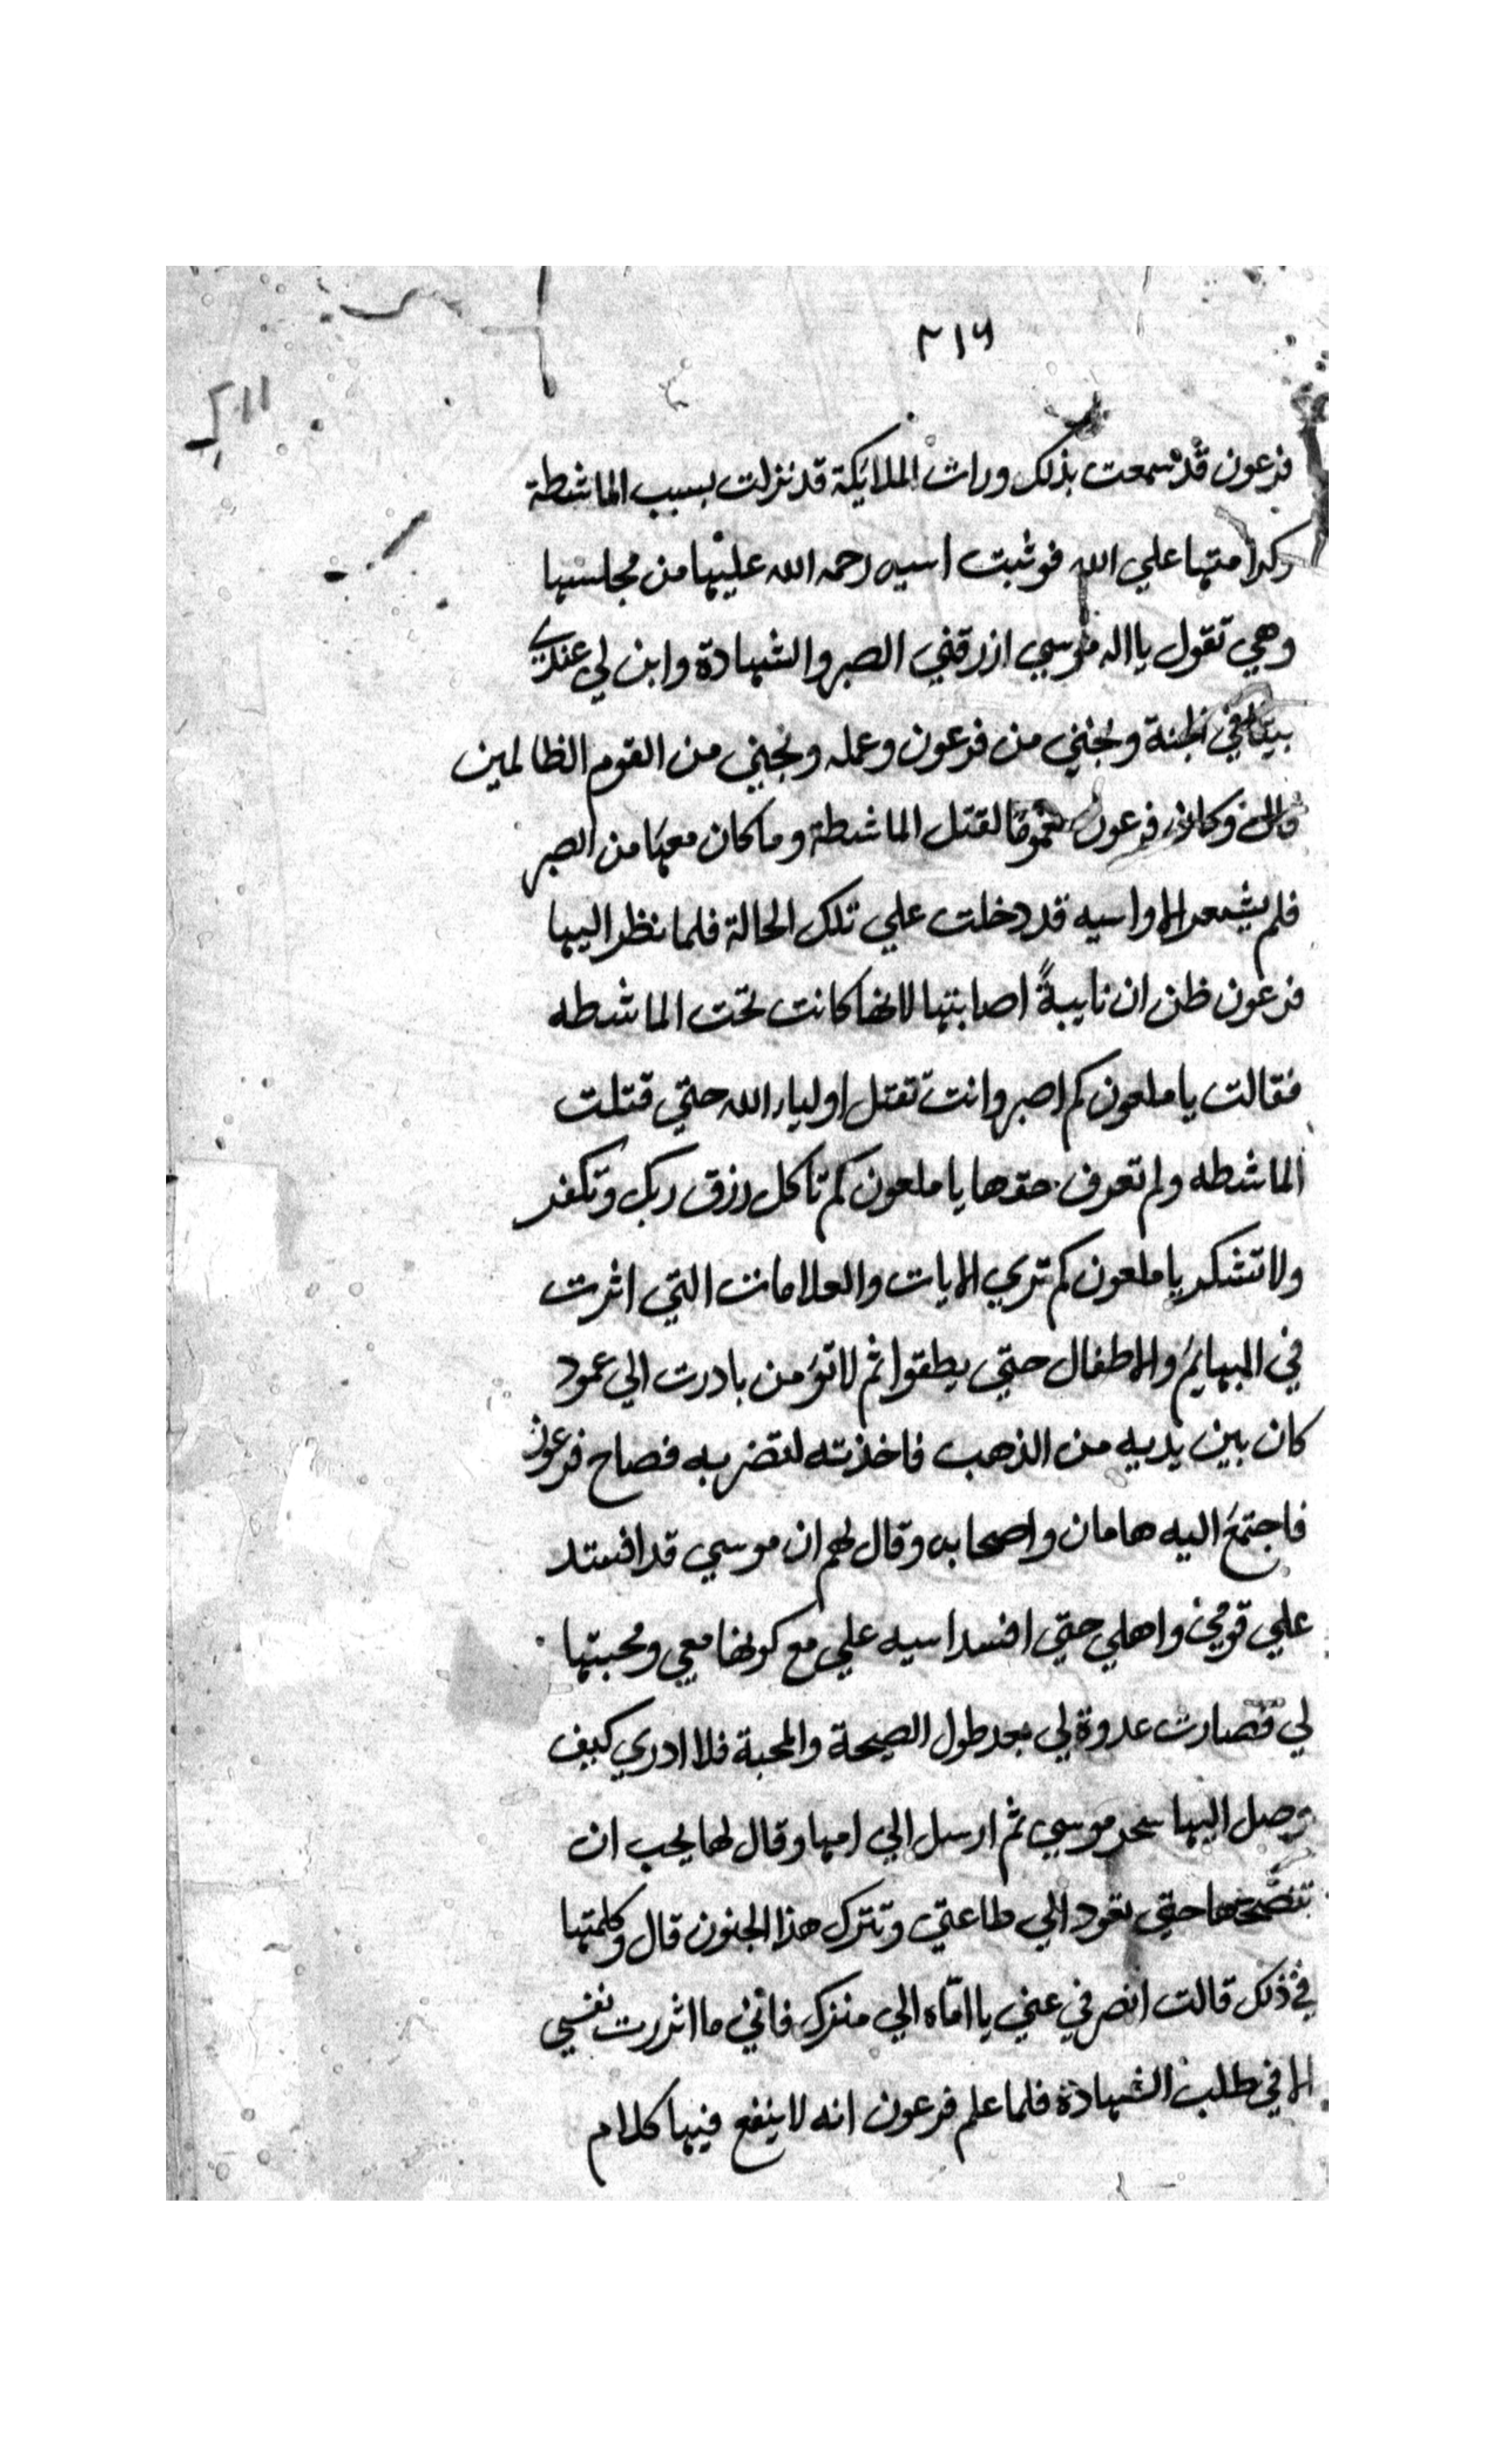 ٢١٦
فرعون قد سمعت بذلك ورات الملايكة قد نزلت بسبب الماشطة
وكرامتها علي الله فوثبت اسيه رحمه الله عليها من مجلسها
وهي تقول يا اله موسي ارزقني الصبر والشهادة وابن لي عندك
بيتا في الجنة ونجني من فرعون وعمله ونجني من القوم الظالمين
قال وكان فرعون مغموما لقتل الماشطة وما كان معها من الصبر
فلم يشعر الا واسيه قد دخلت علي تلك الحالة فلما نظر اليها
فرعون ظن ان نايبةً اصابتها لانها كانت تحت الماشطه
فقالت يا ملعون كم اصبر وانت تقتل اولياء الله حتي قتلت
الماشطه ولم تعرف حقها يا ملعون كم تاكل رزق ربك وتكفر
ولا تشكر يا ملعون كم تري الايات والعلامات التي اثرت
في البهايم والاطفال حتي يطقوا ثم لا تؤمن بادرت الي عمود
كان بين يديه من الذهب فاخذته لتضربه فصاح فرعون
فاجتمع اليه هامان واصحابه وقال لهم ان موسي قد افستد
علي قومي واهلي حتي افسد اسيه علي مع كونها معي ومحبتها
لي فصارت عدوة لي بعد طول الصحبة والمحبة فلا ادري كيف
وصل اليها سحر موسي ثم ارسل الي امها وقال لها يجب ان
تنصحها حتي تعود الي طاعتي وتترك هذا الجنون قال وكلمتها
في ذلك قالت انصرفي عني يا امّاه الي منزلك فاني ما اثررت نفسي
الا في طلب الشهادة فلما علم فرعون انه لا ينفع فيها كلام